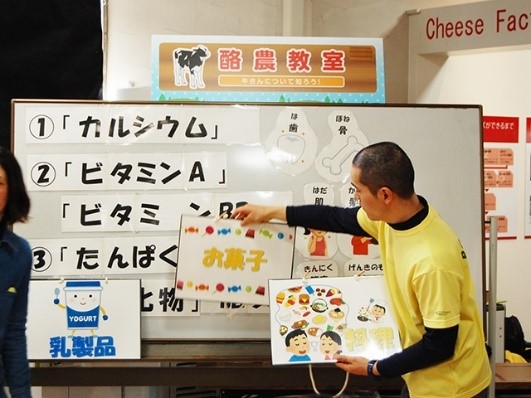 Cheese Fac
酪農教室
牛さんについて知ろう!
①「カルシウム」
は
歯
ほね
骨
②「ビタミンA」
はだ
肌
「ビタミン
③「たんぱく
お菓子
きんにく
げんきのも
化物」
YOGURT
乳製品
料理